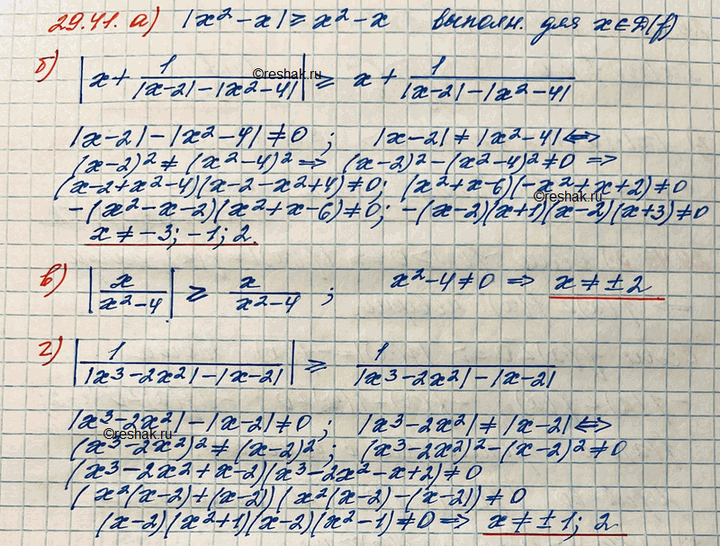 29.41. а) |x² - x| ≥ x² - x выполн. для x ∈ D(f)
б) |x + 1/(|x-2| - |x²-4|)| ≥ x + 1/(|x-2| - |x²-4|)
©reshak.ru
|x-2| - |x²-4| ≠ 0 ; |x-2| ≠ |x²-4| ⇔
(x-2)² ≠ (x²-4)² ⇒ (x-2)² - (x²-4)² ≠ 0 ⇒
(x-2+x²-4)(x-2-x²+4) ≠ 0; (x²+x-6)(-x²+x+2) ≠ 0
©reshak.ru
-(x²-x-2)(x²+x-6) ≠ 0; -(x-2)(x+1)(x-2)(x+3) ≠ 0
x ≠ -3; -1; 2.
в) |x/(x²-4)| ≥ x/(x²-4) ; x²-4 ≠ 0 ⇒ x ≠ ±2
г) |1/(|x³-2x²| - |x-2|)| ≥ 1/(|x³-2x²| - |x-2|)
|x³-2x²| - |x-2| ≠ 0 ; |x³-2x²| ≠ |x-2| ⇔
©reshak.ru
(x³-2x²)² ≠ (x-2)² ; (x³-2x²)² - (x-2)² ≠ 0
(x³-2x²+x-2)(x³-2x²-x+2) ≠ 0
(x²(x-2)+(x-2))(x²(x-2)-(x-2)) ≠ 0
(x-2)(x²+1)(x-2)(x²-1) ≠ 0 ⇒ x ≠ ±1; 2